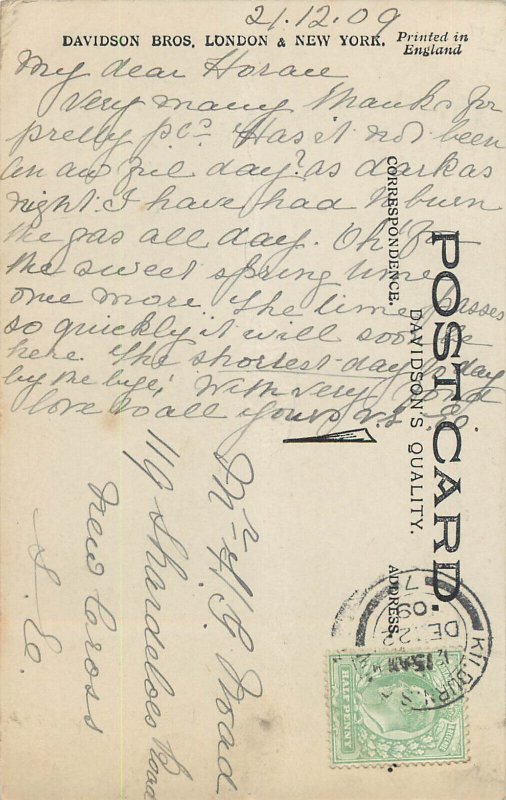 21.12.09
DAVIDSON BROS. LONDON & NEW YORK. Printed in England
My dear Horace
Very many thanks for
pretty p.c. Has it not been
an awful day? as dark as
night. I have had to burn
the gas all day. Oh! for
the sweet spring time
one more. The time passes
so quickly it will soon be
here. The shortest day to day
by the bye, With very fond
love to all yours
POST CARD.
DAVIDSON'S QUALITY.
CORRESPONDENCE.
ADDRESS.
Mr H. G. Woad
119 Shardeloes Road
New Cross
S. E.
KILBURN
DE
09
HALF PENNY